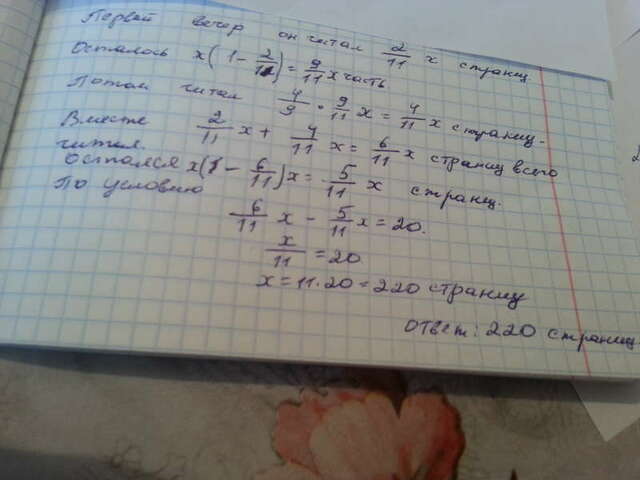 Первый вечер он читал 2/11 x страниц
Осталось x(1 - 2/11) = 9/11 x часть
Потом читал 4/9 · 9/11 x = 4/11 x страниц.
Вместе 2/11 x + 4/11 x = 6/11 x страниц всего
читал.
Остался x(1 - 6/11)x = 5/11 x страниц.
По условию
6/11 x - 5/11 x = 20.
x/11 = 20
x = 11·20 = 220 страниц
Ответ: 220 страниц